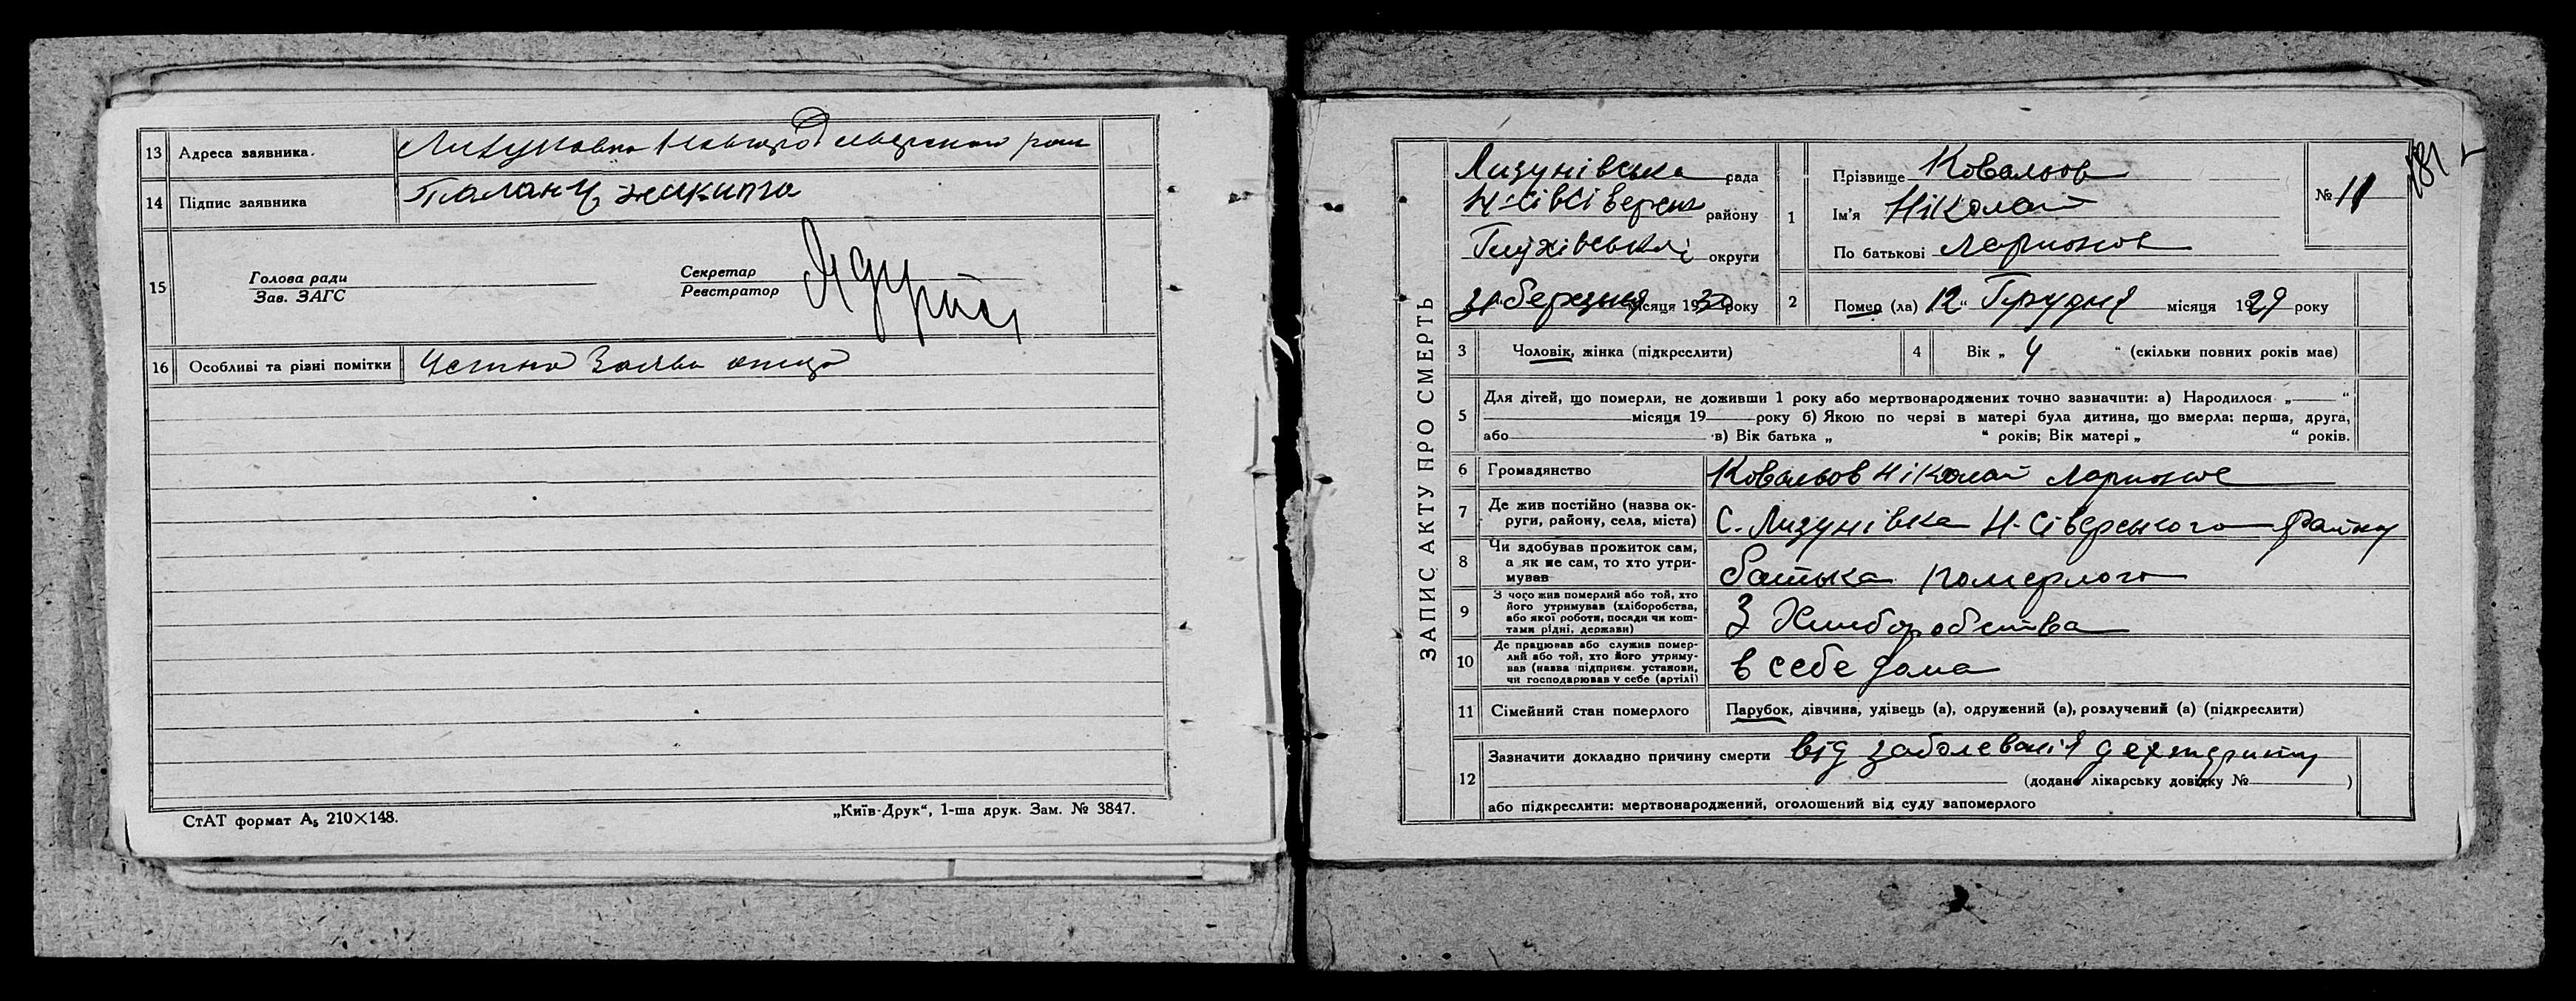 13 Адреса заявника. Лизуновка Новгород северского рай
14 Підпис заявника Паланц Никита
15 Голова ради
Зав. ЗАГС
Секретар
Реєстратор
16 Особливі та різні помітки Устна Заява отца
СтАТ формат А₅ 210×148.
„Київ-Друк“, 1-ша друк. Зам. № 3847.
ЗАПИС АКТУ ПРО СМЕРТЬ
Лизунівська рада
Н-Сівсіверськ району
Глухівської округи
31 „березня місяця 1930 року
1 Прізвище Ковальов
Ім'я Ніколай
По батькові Ларионов
№ 11
181
2 Помер (ла) 12 “ Грудня місяця 1929 року
3 Чоловік, жінка (підкреслити)
4 Вік „ 4 “ (скільки повних років має)
5 Для дітей, що померли, не доживши 1 року або мертвонароджених точно зазначити: а) Народилося „ “
місяця 19 року б) Якою по черзі в матері була дитина, що вмерла: перша, друга,
або в) Вік батька „ “ років; Вік матері „ “ років.
6 Громадянство Ковальов Ніколай Ларионов
7 Де жив постійно (назва ок-
руги, району, села, міста) С. Лизунівка Н-Сіверського району
8 Чи здобував прожиток сам,
а як не сам, то хто утри-
мував батька померлого
9 З чого жив померлий або той, хто
його утримував (хліборобства,
або якої роботи, посади чи кош-
тами рідні, держави) З Хлиборобства
10 Де працював або служив помер-
лий або той, хто його утриму-
вав (назва підприєм. установи,
чи господарював у себе (артілі) в себе дома
11 Сімейний стан померлого Парубок, дівчина, удівець (а), одружений (а), розлучений (а) (підкреслити)
12 Зазначити докладно причину смерти від заболеванія дехтериту
(додано лікарську довідку № )
або підкреслити: мертвонароджений, оголошений від суду запомерлого